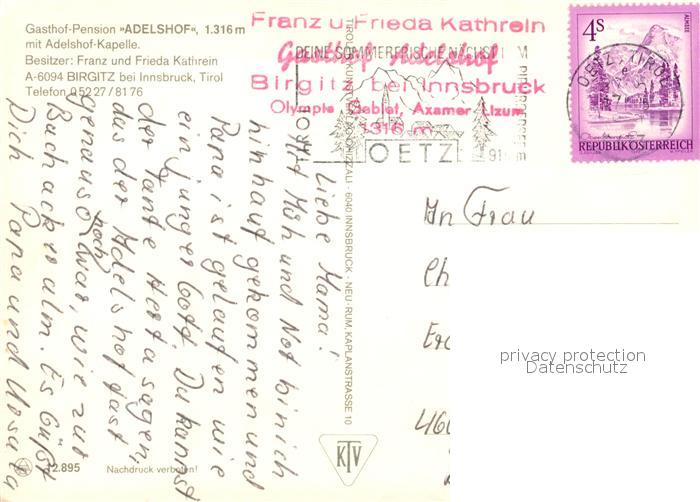 Gasthof-Pension »ADELSHOF«, 1.316 m
mit Adelshof-Kapelle.
Besitzer: Franz und Frieda Kathrein
A-6094 BIRGITZ bei Innsbruck, Tirol
Telefon 0 52 27 / 81 76
Franz u Frieda Kathrein
Gasthof Adelshof
Birgitz bei Innsbruck
Olympia Gebiet, Axamer Lizum
1316 m
DEINE SOMMERFRISCHE
OETZ
4S
ALMSEE
REPUBLIK ÖSTERREICH
OETZ, TIROL
Liebe Mama!
Mit Müh und Not bin ich
hinauf gekommen und
Papa ist gelaufen wie
ein junger Gott. Du kannst
der Tante Herta sagen,
das der Adelshof fast
noch
genauso war, wie zur
Bachackeralm. Es Grüßt
Dich Papa und Ursula
An Frau
Ch
460
privacy protection
Datenschutz
6040 INNSBRUCK - NEU-RUM, KAPLANSTRASSE 10
KTV
12.895
Nachdruck verboten!